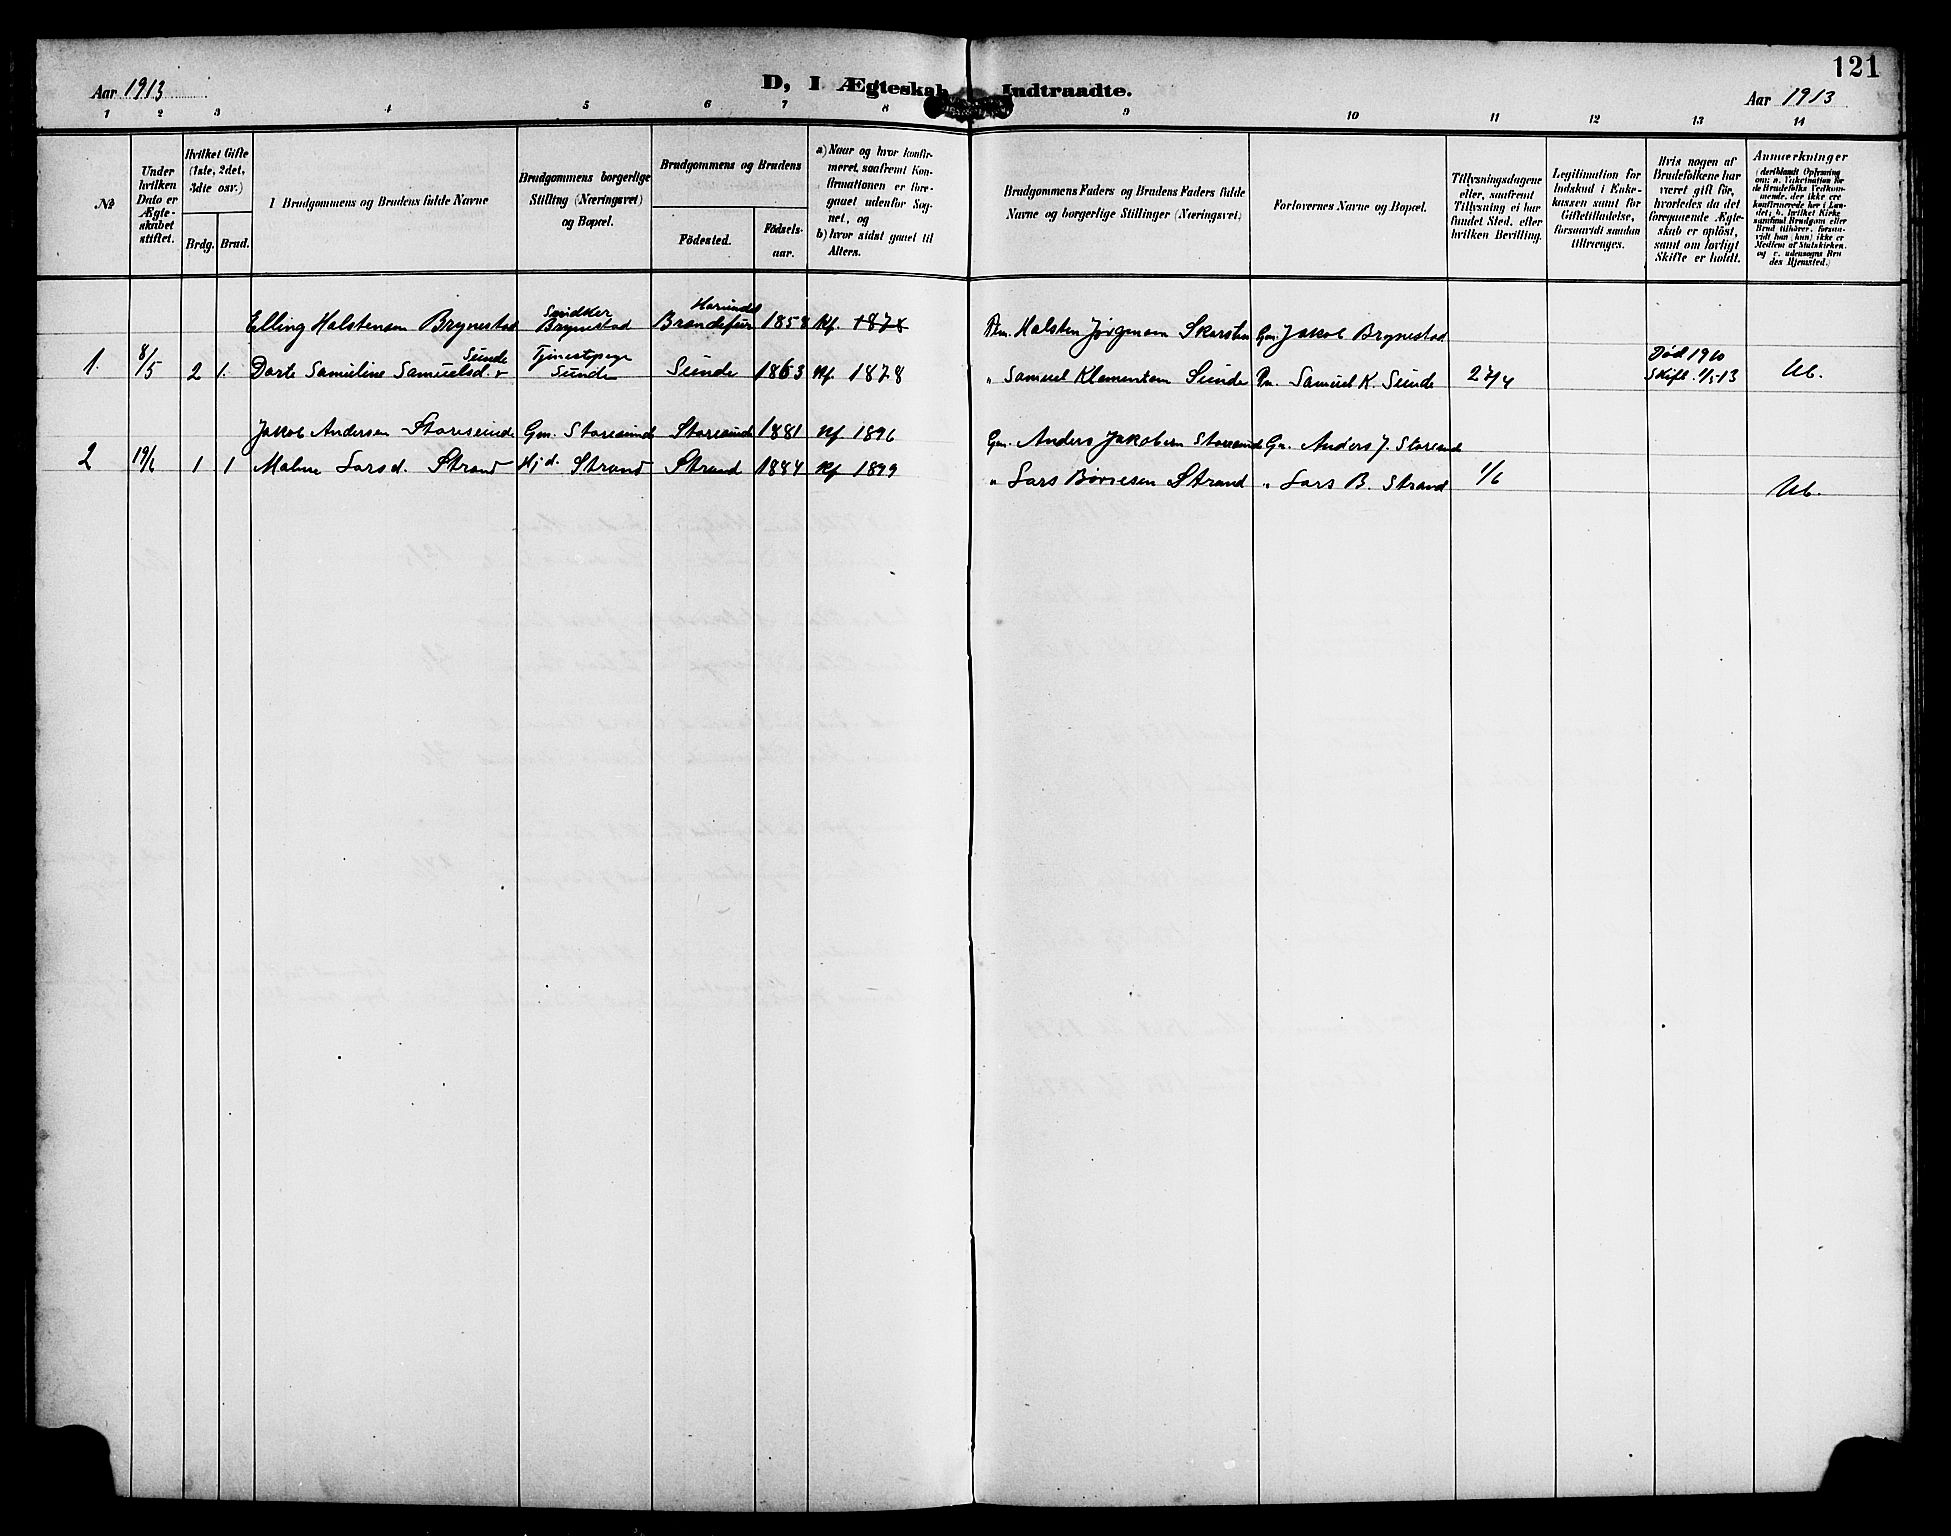 121
Aar 1913
D, I Ægteskab Indtraadte.
Aar 1913
1 2 3 4 5 6 7 8 9 10 11 12 13 14
№
Under hvilken Dato er Ægteskabet stiftet.
Hvilket Gifte (1ste, 2det, 3die osv.)
Brdg. Brud.
1 Brudgommens og Brudens fulde Navne
Brudgommens borgerlige Stilling (Næringsvei) og Bopæl.
Brudgommens og Brudens
Födested.
Födsels-aar.
a) Naar og hvor konfirmeret, saafremt Konfirmationen er foregaaet udenfor Sognet, og
b) hvor sidst gaaet til Alters.
Brudgommens Faders og Brudens Faders fulde Navne og borgerlige Stillinger (Næringsvei)
Forlovernes Navne og Bopæl.
Tillysningsdagene eller, saafremt Tillysning ei har fundet Sted, efter hvilken Bevilling.
Legitimation for Indskud i Enkekassen samt for Giftetilladelse, forsaavidt saadan tiltrænges.
Hvis nogen af Brudefolkene har været gift för, hvorledes da det foregaaende Ægteskab er oplöst, samt om lovligt Skifte er holdt.
Anmærkninger
(deriblandt Oplysning om: a. Vakcination for de Brudefolks Vedkommende, der ikke ere konfirmerede her i Landet; b. hvilket Kirkesamfund Brudgom eller Brud tilhörer, forsaavidt han (hun) ikke er Medlem af Statskirken, og c. udensogns Brudes Hjemsted.)
Elling Halstensen Brynestad Snedker Brynestad 1858 Kf. 1878 Halsten Jørgensen Gm. Jakob Brynestad
1. 8/5 2 1. Dorte Sameline Samuelsd. Sunde Tjenestpige Sunde Sunde 1863 Kf 1878 „ Samuel Klementsen Sunde Samuel K. Sunde 27/4 Død 1910 Skift. 1/5-13 Ub.
Jakob Andersen Storesunde Gm. Storesund Storesund 1881 Kf 1896 Gm. Anders Jakobsen Storesund Gm. Anders J. Storesund
2 19/6 1 1 Malene Larsd. Strand Hjd. Strand Strand 1884 Kf 1899 „ Lars Børresen Strand „ Lars B. Strand 1/6 Ub.